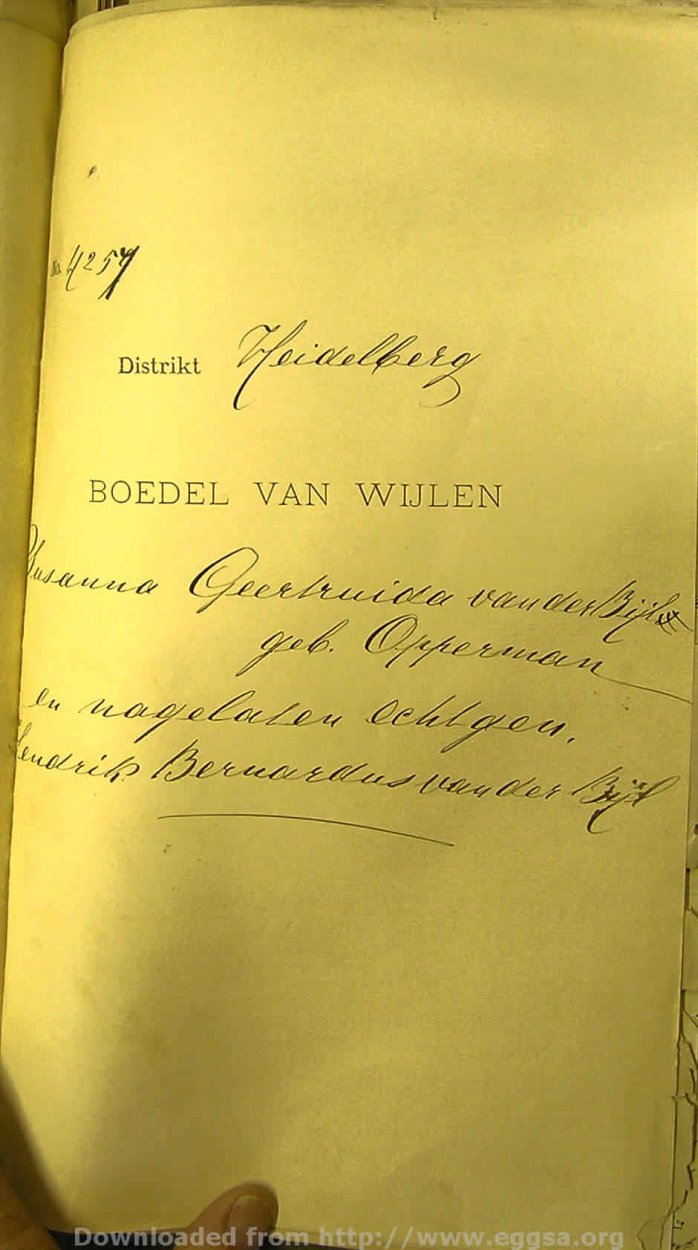 No. 4257
Distrikt Heidelberg
BOEDEL VAN WIJLEN
Susanna Geertruida van der Bijl
geb. Opperman
en nagelaten echtgen.
Hendrik Bernardus van der Bijl
Downloaded from http://www.eggsa.org